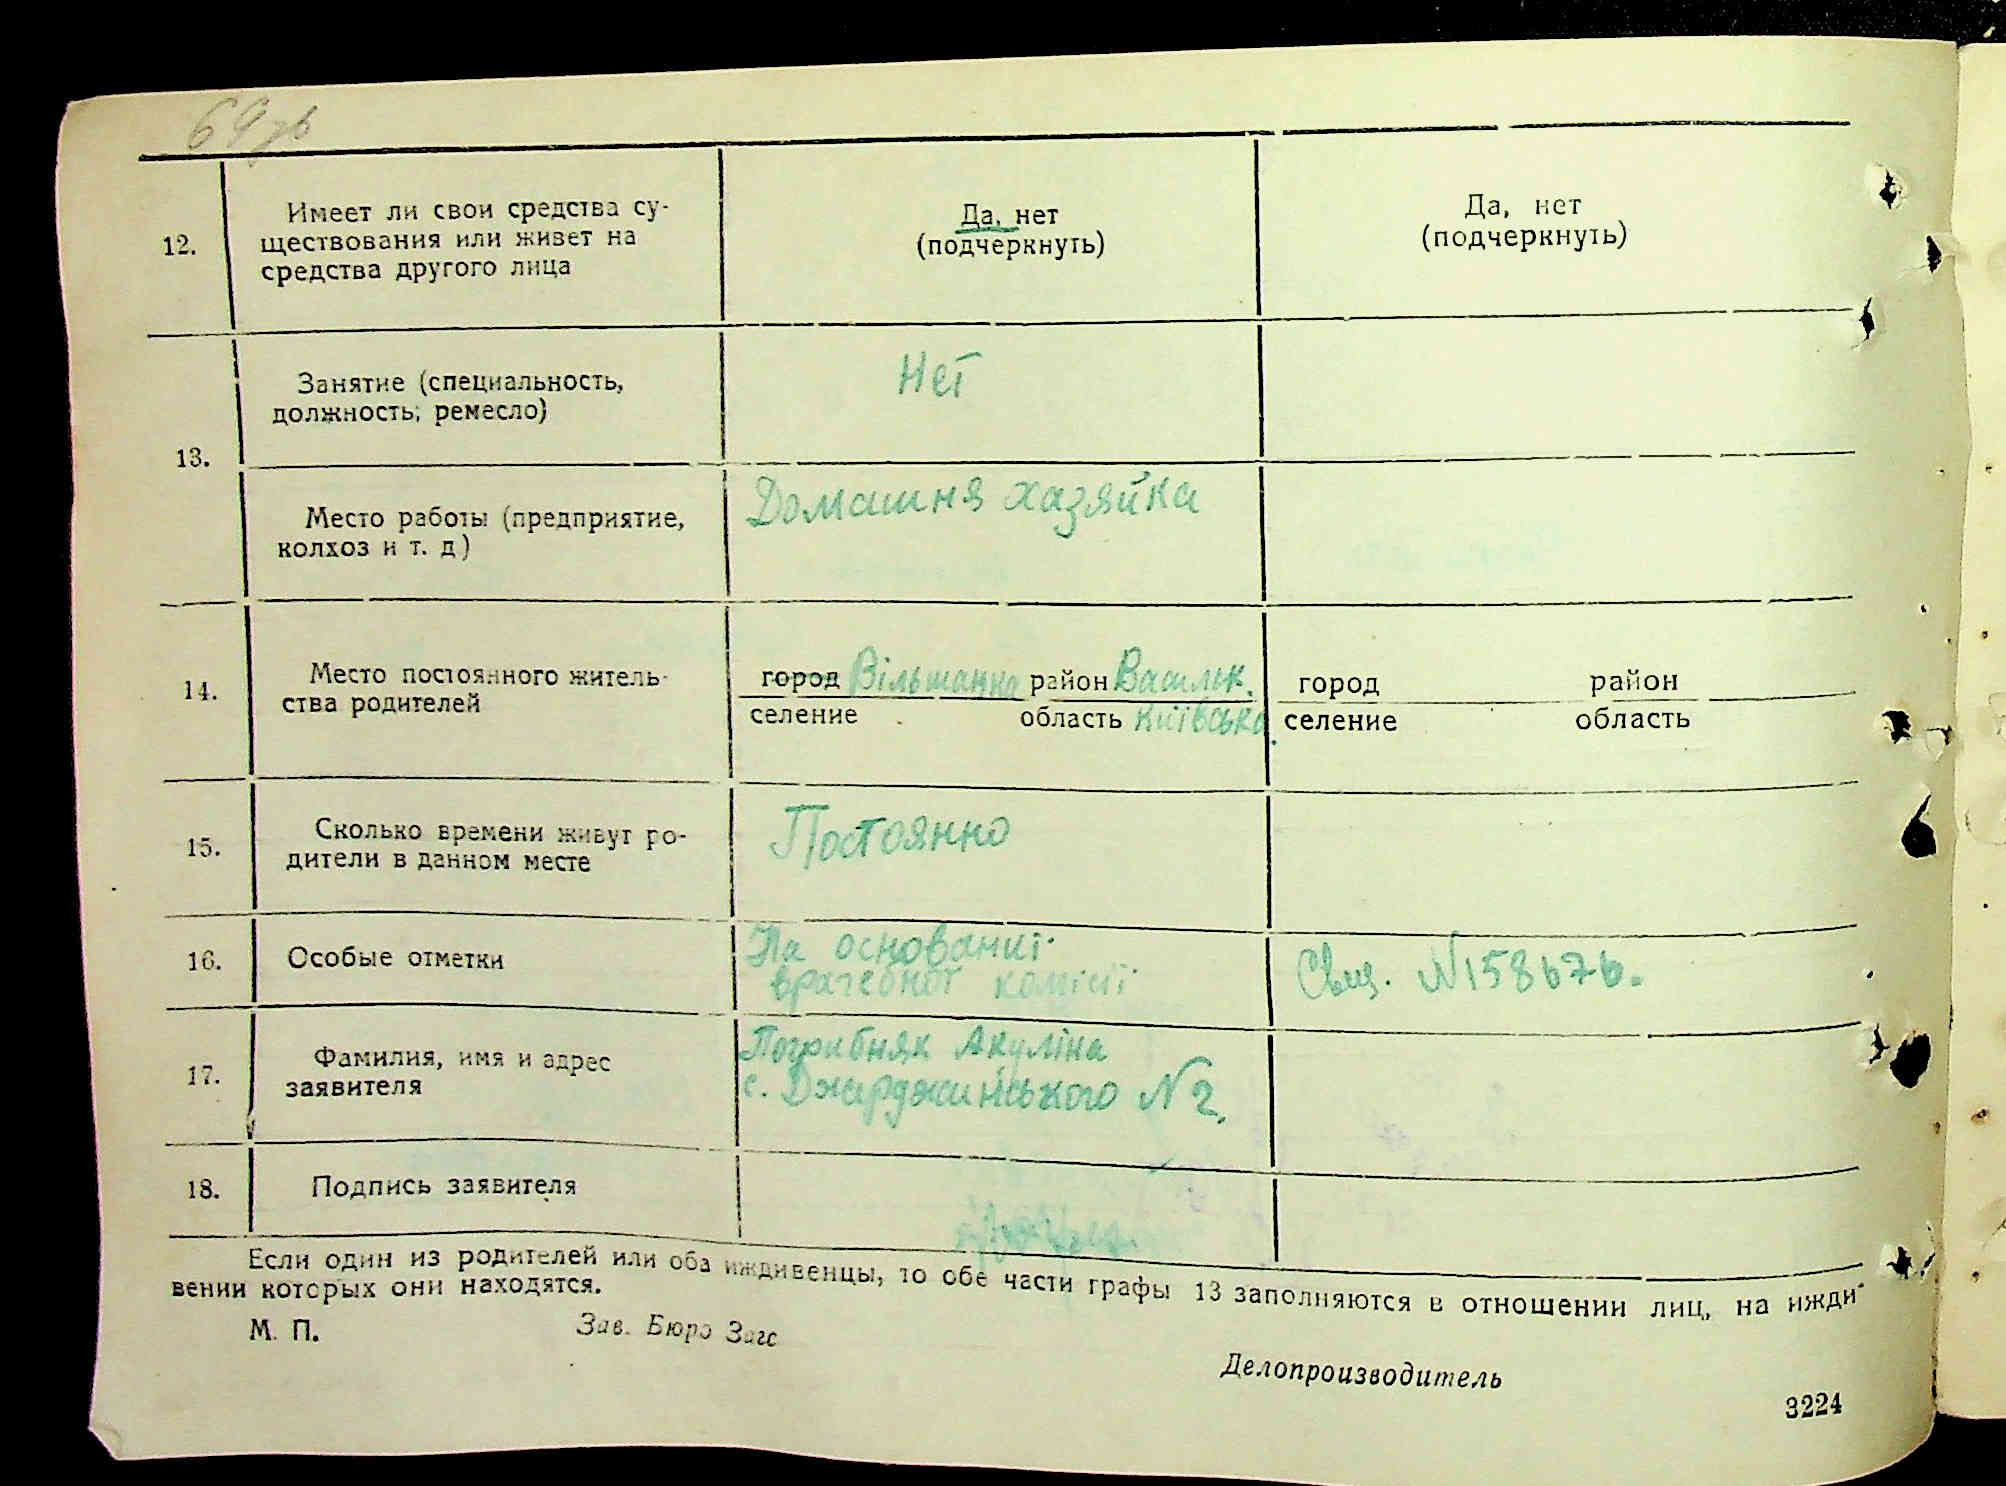 69 зв
12.
Имеет ли свои средства су-
ществования или живет на
средства другого лица
Да, нет
(подчеркнуть)
Да, нет
(подчеркнуть)
13.
Занятие (специальность,
должность, ремесло)
Нет
Место работы (предприятие,
колхоз и т. д)
Домашня хазяйка
14.
Место постоянного житель-
ства родителей
город Вільшанка район Васильк.
селение область Київська
город район
селение область
15.
Сколько времени живут ро-
дители в данном месте
Постоянно
16.
Особые отметки
На основании
врачебної комісії
Свид. N 158676.
17.
Фамилия, имя и адрес
заявителя
Погрибняк Акуліна
с. Джерджинського N 2.
18.
Подпись заявителя
Если один из родителей или оба иждивенцы, то обе части графы 13 заполняются в отношении лиц, на ижди-
вении которых они находятся.
М. П.
Зав. Бюро Загс
Делопроизводитель
3224